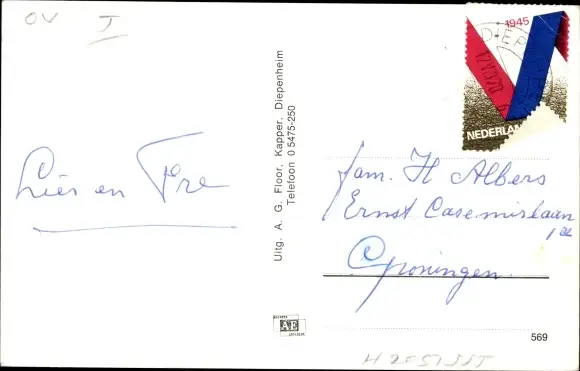 OV I
1945
DIEP
NEDERLAN
Uitg. A. G. Floor, Kapper, Diepenheim
Telefoon 0 5475-250
Lies en Fre
fam. H Albers
Ernst Casemirlaan
12a
Groningen.
AE
569